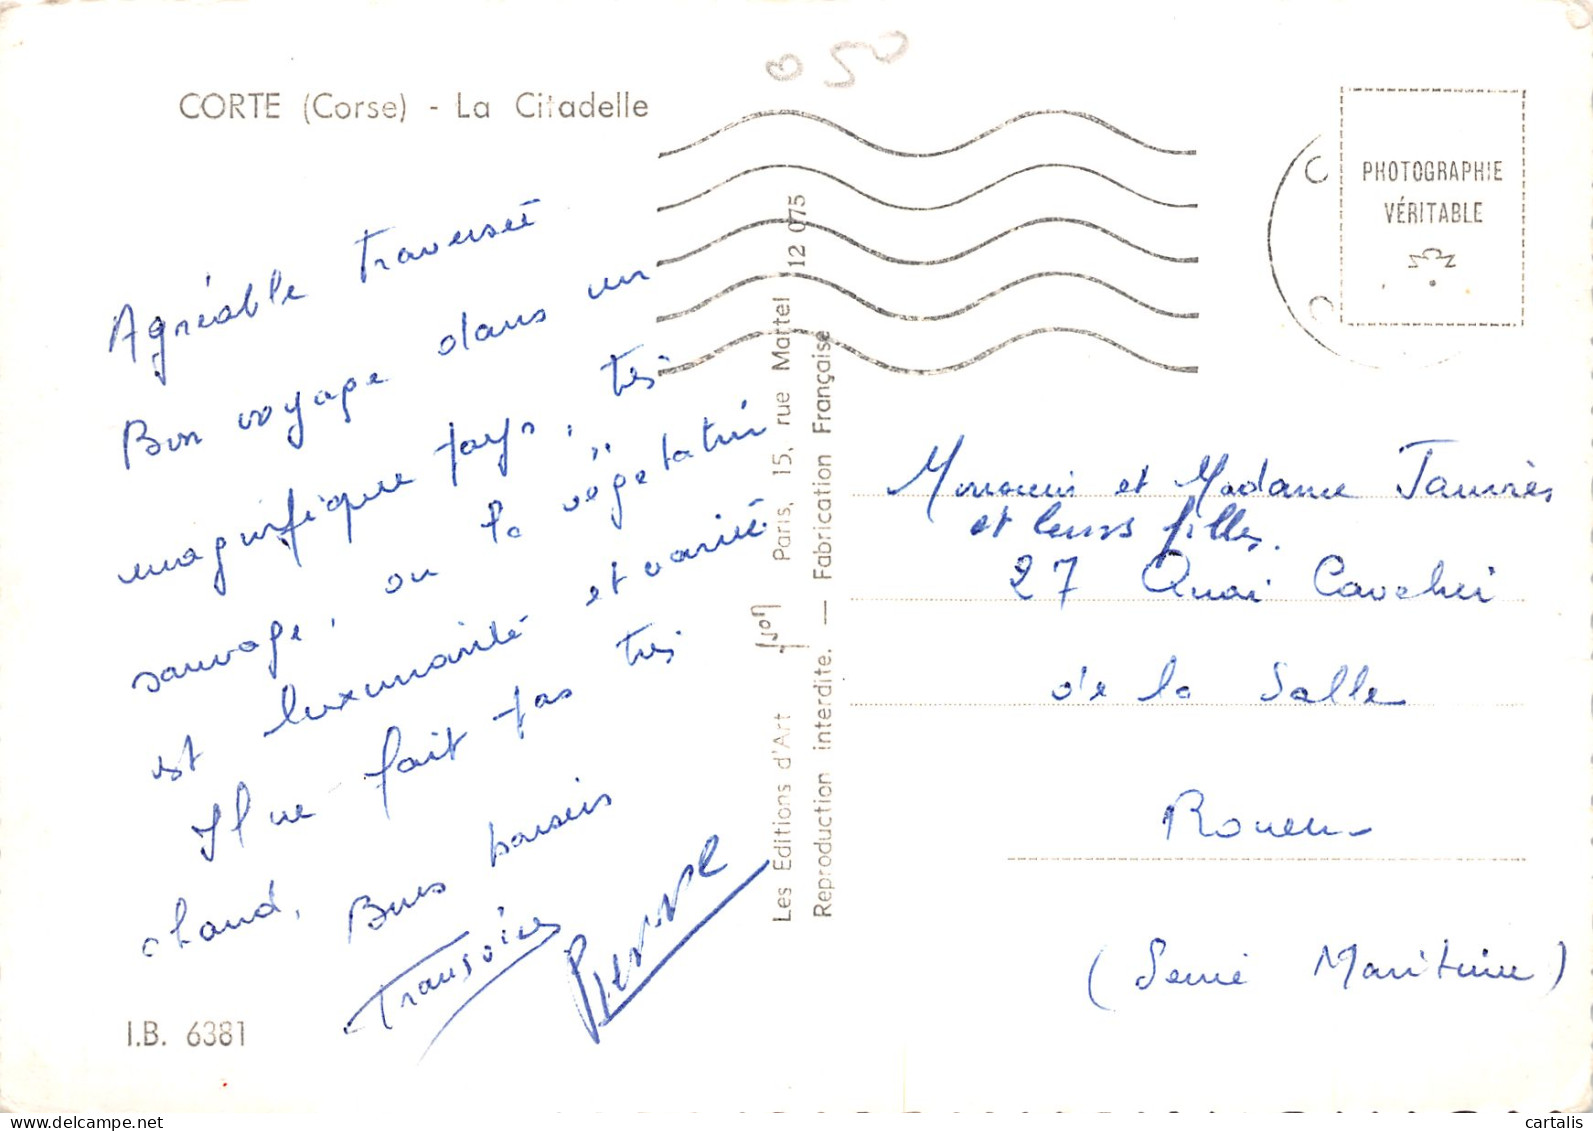 050
CORTE (Corse) - La Citadelle
Agréable traversée
Bon voyage dans un
magnifique pays, très
sauvage, où la végétation
est luxuriante et variée
Il ne fait pas très
chaud. Bons baisers
Françoise Pierre
I.B. 6381
Les Editions d'Art yvon Paris, 15, rue Martel 12 075
Reproduction interdite. — Fabrication Française
PHOTOGRAPHIE
VÉRITABLE
Monsieur et Madame
et leurs filles.
27 Quai Cavelier
de la Salle
Rouen
(Seine Maritime)
cartalis